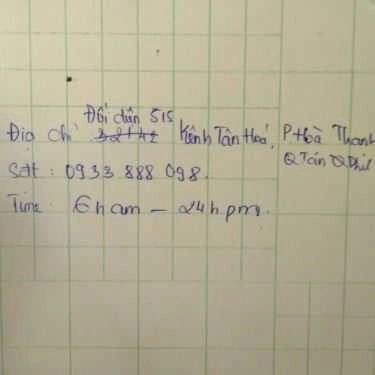 Đối diện 515
Địa chỉ Kênh Tân Hoá, P Hoà Thạnh
Q Tân Phú
Sđt : 0933 888 098.
Time: 6h am - 24h pm.